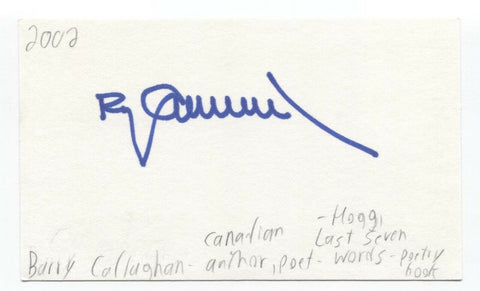 2002
canadian - Hogg,
Last Seven
Barry Callaghan - author, poet - words - poetry
book